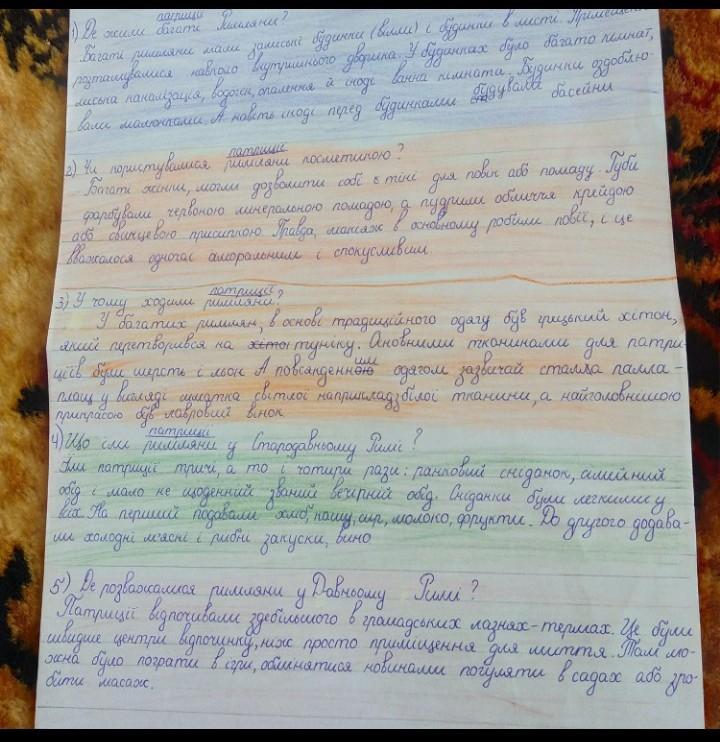 патриції
1) Де жили багаті Римляни?
Багаті римляни мали заміські будинки (вілли) і будинки в місті. Приміщення
розташувалися навколо внутрішнього дворика. У будинках було багато кімнат,
міська каналізація, водогін, опалення й іноді ванна кімната. Будинки оздоблю-
вали малюнками. А навіть іноді перед будинками будували басейни
патриції
2) Чи користувалися римляни косметикою?
Багаті жінки, могли дозволити собі є тіні для повік або помаду. Губи
фарбували червоною минеральною помадою, а пудрили обличчя крейдою
або свинцевою присипкою. Правда, макіяж в основному робили повії, і це
вважалося одночас аморальним і спокусливим.
патриції
3) У чому ходили римляни?
У багатих римлян, в основі традиційного одягу був грицький хітон,
який перетворився на хітон туніку. Ановними тканинами для патри-
ціїв були шерсть і льон. А повсянденною им одягом зазвичай сталла палла -
плащ у вигляді шматка світлої наприкладзбілої тканини, а найголовнішою
прикрасою був лавровий вінок
патриції
4) Що їли римляни у Стародавньому Римі?
Їли патриції тричі, а то і чотири рази: ранковий сніданок, сімейний
обід і мало не щоденний званий вечірній обід. Сніданки були легкими у
всіх. На перший подавали хліб, кашу, сир, молоко, фрукти. До другого додава-
ли холодні м'ясні і рибні закуски, вино
5) Де розважалися римляни у Давньому Римі?
Патриції відпочивали здебільшого в громадських лазнях-термах. Це були
швидше центри відпочинку, ніж просто приміщення для миття. Там мо-
жна було пограти в ігри, обмінятися новинами погуляти в садах або зро-
бити масаж.